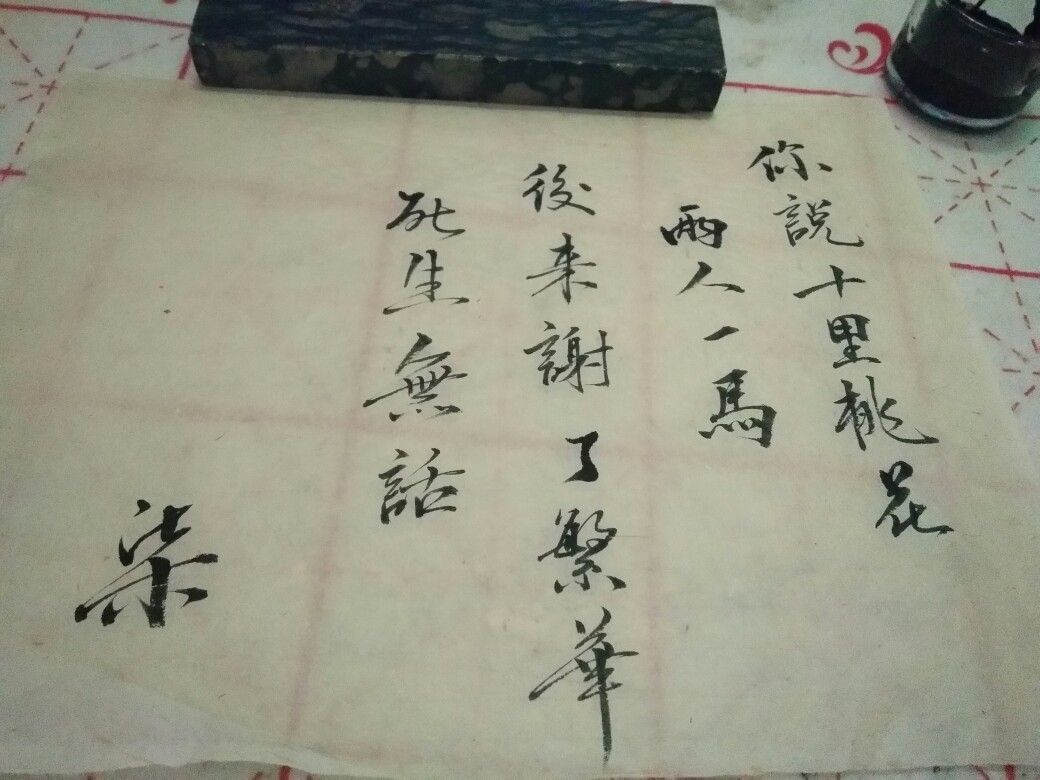 你說十里桃花
兩人一馬
後来謝了繁華
死生無話
柒